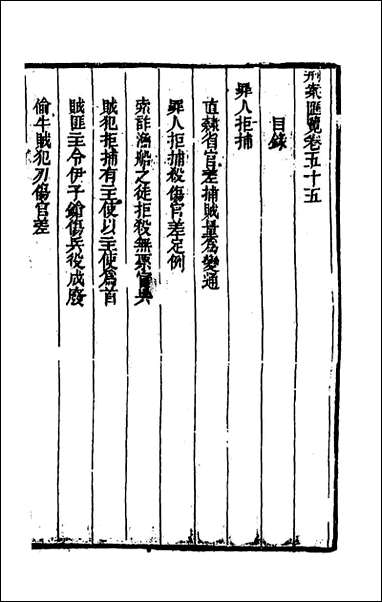 刑案匯覽卷五十五
目錄
罪人拒捕
直隸省官差捕賊量為變通
罪人拒捕殺傷官差定例
索詐漁船之徒拒殺無票官兵
賊犯拒捕有主使以主使為首
賊匪主令伊子鎗傷兵役成廢
偷牛賊犯刃傷官差